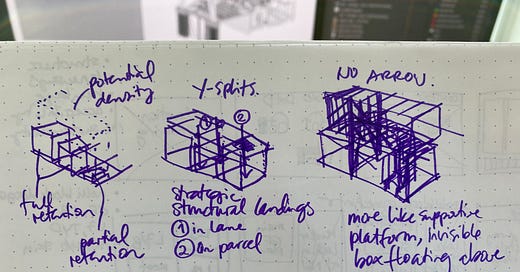 potential
density
full
retention
partial
retention
Y-splits.
① ②
strategic
structural landings
① in lane
② on parcel
NO ARROW.
more like supportive
platform, invisible
box floating above